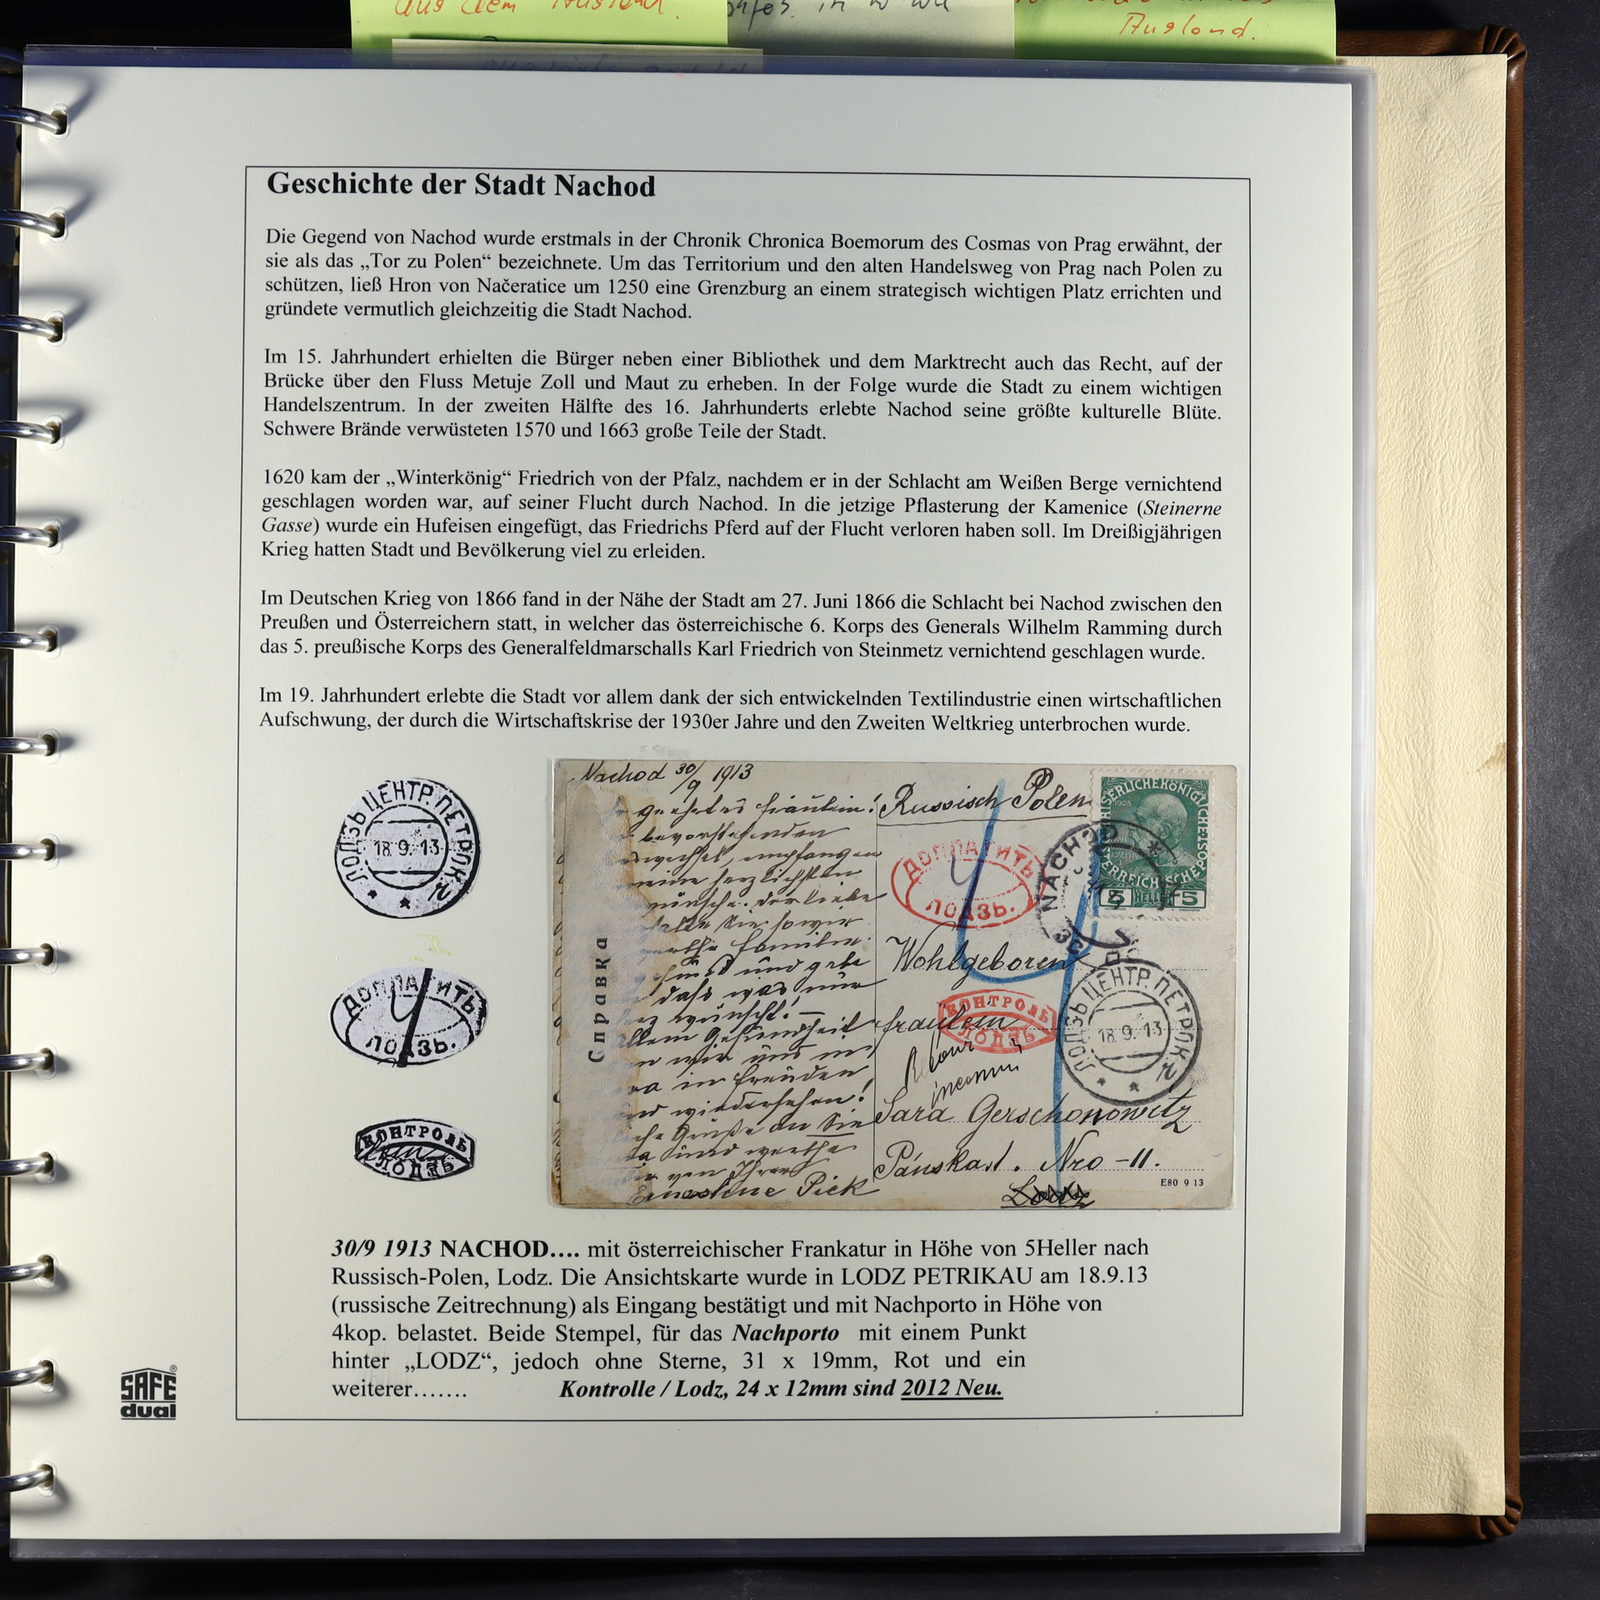 aus dem Ausland.
Ausland.
Geschichte der Stadt Nachod
Die Gegend von Nachod wurde erstmals in der Chronik Chronica Boemorum des Cosmas von Prag erwähnt, der
sie als das „Tor zu Polen“ bezeichnete. Um das Territorium und den alten Handelsweg von Prag nach Polen zu
schützen, ließ Hron von Načeratice um 1250 eine Grenzburg an einem strategisch wichtigen Platz errichten und
gründete vermutlich gleichzeitig die Stadt Nachod.
Im 15. Jahrhundert erhielten die Bürger neben einer Bibliothek und dem Marktrecht auch das Recht, auf der
Brücke über den Fluss Metuje Zoll und Maut zu erheben. In der Folge wurde die Stadt zu einem wichtigen
Handelszentrum. In der zweiten Hälfte des 16. Jahrhunderts erlebte Nachod seine größte kulturelle Blüte.
Schwere Brände verwüsteten 1570 und 1663 große Teile der Stadt.
1620 kam der „Winterkönig“ Friedrich von der Pfalz, nachdem er in der Schlacht am Weißen Berge vernichtend
geschlagen worden war, auf seiner Flucht durch Nachod. In die jetzige Pflasterung der Kamenice (Steinerne
Gasse) wurde ein Hufeisen eingefügt, das Friedrichs Pferd auf der Flucht verloren haben soll. Im Dreißigjährigen
Krieg hatten Stadt und Bevölkerung viel zu erleiden.
Im Deutschen Krieg von 1866 fand in der Nähe der Stadt am 27. Juni 1866 die Schlacht bei Nachod zwischen den
Preußen und Österreichern statt, in welcher das österreichische 6. Korps des Generals Wilhelm Ramming durch
das 5. preußische Korps des Generalfeldmarschalls Karl Friedrich von Steinmetz vernichtend geschlagen wurde.
Im 19. Jahrhundert erlebte die Stadt vor allem dank der sich entwickelnden Textilindustrie einen wirtschaftlichen
Aufschwung, der durch die Wirtschaftskrise der 1930er Jahre und den Zweiten Weltkrieg unterbrochen wurde.
ЛОДЗЬ ЦЕНТР. ПЕТРОК.
18.9.13
ДОПЛАТИТЬ
4
ЛОДЗЬ.
КОНТРОЛЬ
ЛОДЗЬ
Nachod 30/9 1913
geehrtes Fräulein!
bevorstehenden
empfangen
meine herzlichsten
wünsche. Der liebe
Sie sowie
Familie
und gebe
daß was nur
wünscht!
allem Gesundheit
wir uns
in Freuden
wiedersehen!
Grüße an Sie
und werthe
von Ihrer
Ernestine Pick
Справка
Russisch Polen
5 HELLER 5
ДОПЛАТИТЬ
4
ЛОДЗЬ.
NACHOD
Wohlgeboren
КОНТРОЛЬ
ЛОДЗЬ
Fräulein
ЛОДЗЬ ЦЕНТР. ПЕТРОК.
18.9.13
inconnu
Sara Gerschonowitz
Panska st. Nro 11.
Lodz
E80 9 13
30/9 1913 NACHOD…. mit österreichischer Frankatur in Höhe von 5Heller nach
Russisch-Polen, Lodz. Die Ansichtskarte wurde in LODZ PETRIKAU am 18.9.13
(russische Zeitrechnung) als Eingang bestätigt und mit Nachporto in Höhe von
4kop. belastet. Beide Stempel, für das Nachporto mit einem Punkt
hinter „LODZ“, jedoch ohne Sterne, 31 x 19mm, Rot und ein
weiterer……. Kontrolle / Lodz, 24 x 12mm sind 2012 Neu.
SAFE®
dual